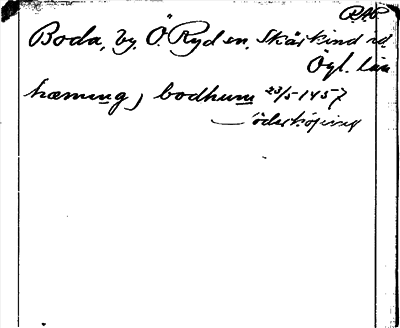 Boda, by, Ö. Ryd sn, Skärkind hd.
Ögl. län
hæming, bodhum 23/5 1457
Söderköping